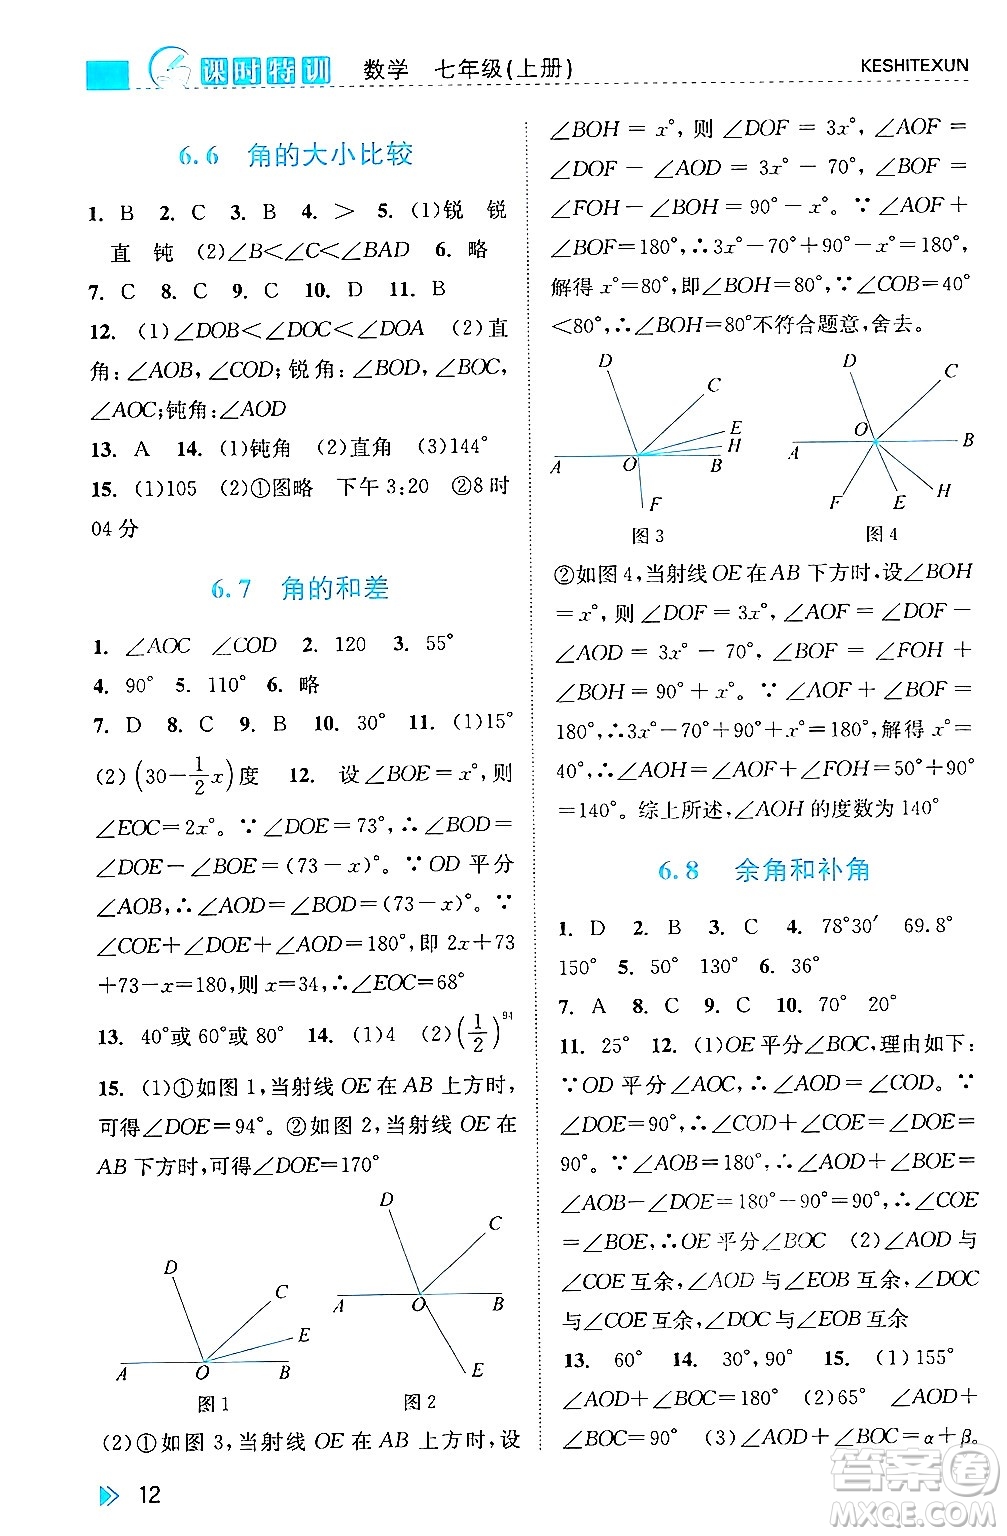 课时特训 数学 七年级(上册)
KESHITEXUN
6.6 角的大小比较
1. B 2. C 3. B 4. > 5. (1)锐 锐
直 钝 (2)∠B<∠C<∠BAD 6. 略
7. C 8. C 9. C 10. D 11. B
12. (1)∠DOB<∠DOC<∠DOA (2)直
角:∠AOB,∠COD;锐角:∠BOD,∠BOC,
∠AOC;钝角:∠AOD
13. A 14. (1)钝角 (2)直角 (3)144°
15. (1)105 (2)①图略 下午3:20 ②8时
04分
6.7 角的和差
1. ∠AOC ∠COD 2. 120 3. 55°
4. 90° 5. 110° 6. 略
7. D 8. C 9. B 10. 30° 11. (1)15°
(2)(30-1/2x)度 12. 设∠BOE=x°,则
∠EOC=2x°。∵∠DOE=73°,∴∠BOD=
∠DOE-∠BOE=(73-x)°。∵OD平分
∠AOB,∴∠AOD=∠BOD=(73-x)°。∵
∠COE+∠DOE+∠AOD=180°,即2x+73
+73-x=180,则x=34,∴∠EOC=68°
13. 40°或60°或80° 14. (1)4 (2)(1/2)^94
15. (1)①如图1,当射线OE在AB上方时,
可得∠DOE=94°。②如图2,当射线OE在
AB下方时,可得∠DOE=170°
D
C
E
A O B
图1
D
C
A O B
E
图2
(2)①如图3,当射线OE在AB上方时,设
∠BOH=x°,则∠DOF=3x°,∠AOF=
∠DOF-∠AOD=3x°-70°,∠BOF=
∠FOH-∠BOH=90°-x°。∵∠AOF+
∠BOF=180°,∴3x°-70°+90°-x°=180°,
解得x°=80°,即∠BOH=80°。∵∠COB=40°
<80°,∴∠BOH=80°不符合题意,舍去。
D
C
E
H
A O B
F
图3
D
C
O
A B
F E H
图4
②如图4,当射线OE在AB下方时,设∠BOH
=x°,则∠DOF=3x°,∠AOF=∠DOF-
∠AOD=3x°-70°,∠BOF=∠FOH+
∠BOH=90°+x°。∵∠AOF+∠BOF=
180°,∴3x°-70°+90°+x°=180°,解得x°=
40°,∴∠AOH=∠AOF+∠FOH=50°+90°
=140°。综上所述,∠AOH的度数为140°
6.8 余角和补角
1. D 2. B 3. C 4. 78°30′ 69.8°
150° 5. 50° 130° 6. 36°
7. A 8. C 9. C 10. 70° 20°
11. 25° 12. (1)OE平分∠BOC,理由如下:
∵OD平分∠AOC,∴∠AOD=∠COD。∵
∠DOE=90°,∴∠COD+∠COE=∠DOE=
90°。∵∠AOB=180°,∴∠AOD+∠BOE=
∠AOB-∠DOE=180°-90°=90°,∴∠COE
=∠BOE,∴OE平分∠BOC (2)∠AOD与
∠COE互余,∠AOD与∠EOB互余,∠DOC
与∠COE互余,∠DOC与∠BOE互余
13. 60° 14. 30°,90° 15. (1)155°
∠AOD+∠BOC=180° (2)65° ∠AOD+
∠BOC=90° (3)∠AOD+∠BOC=α+β。
12
答案圈
MXQE.COM